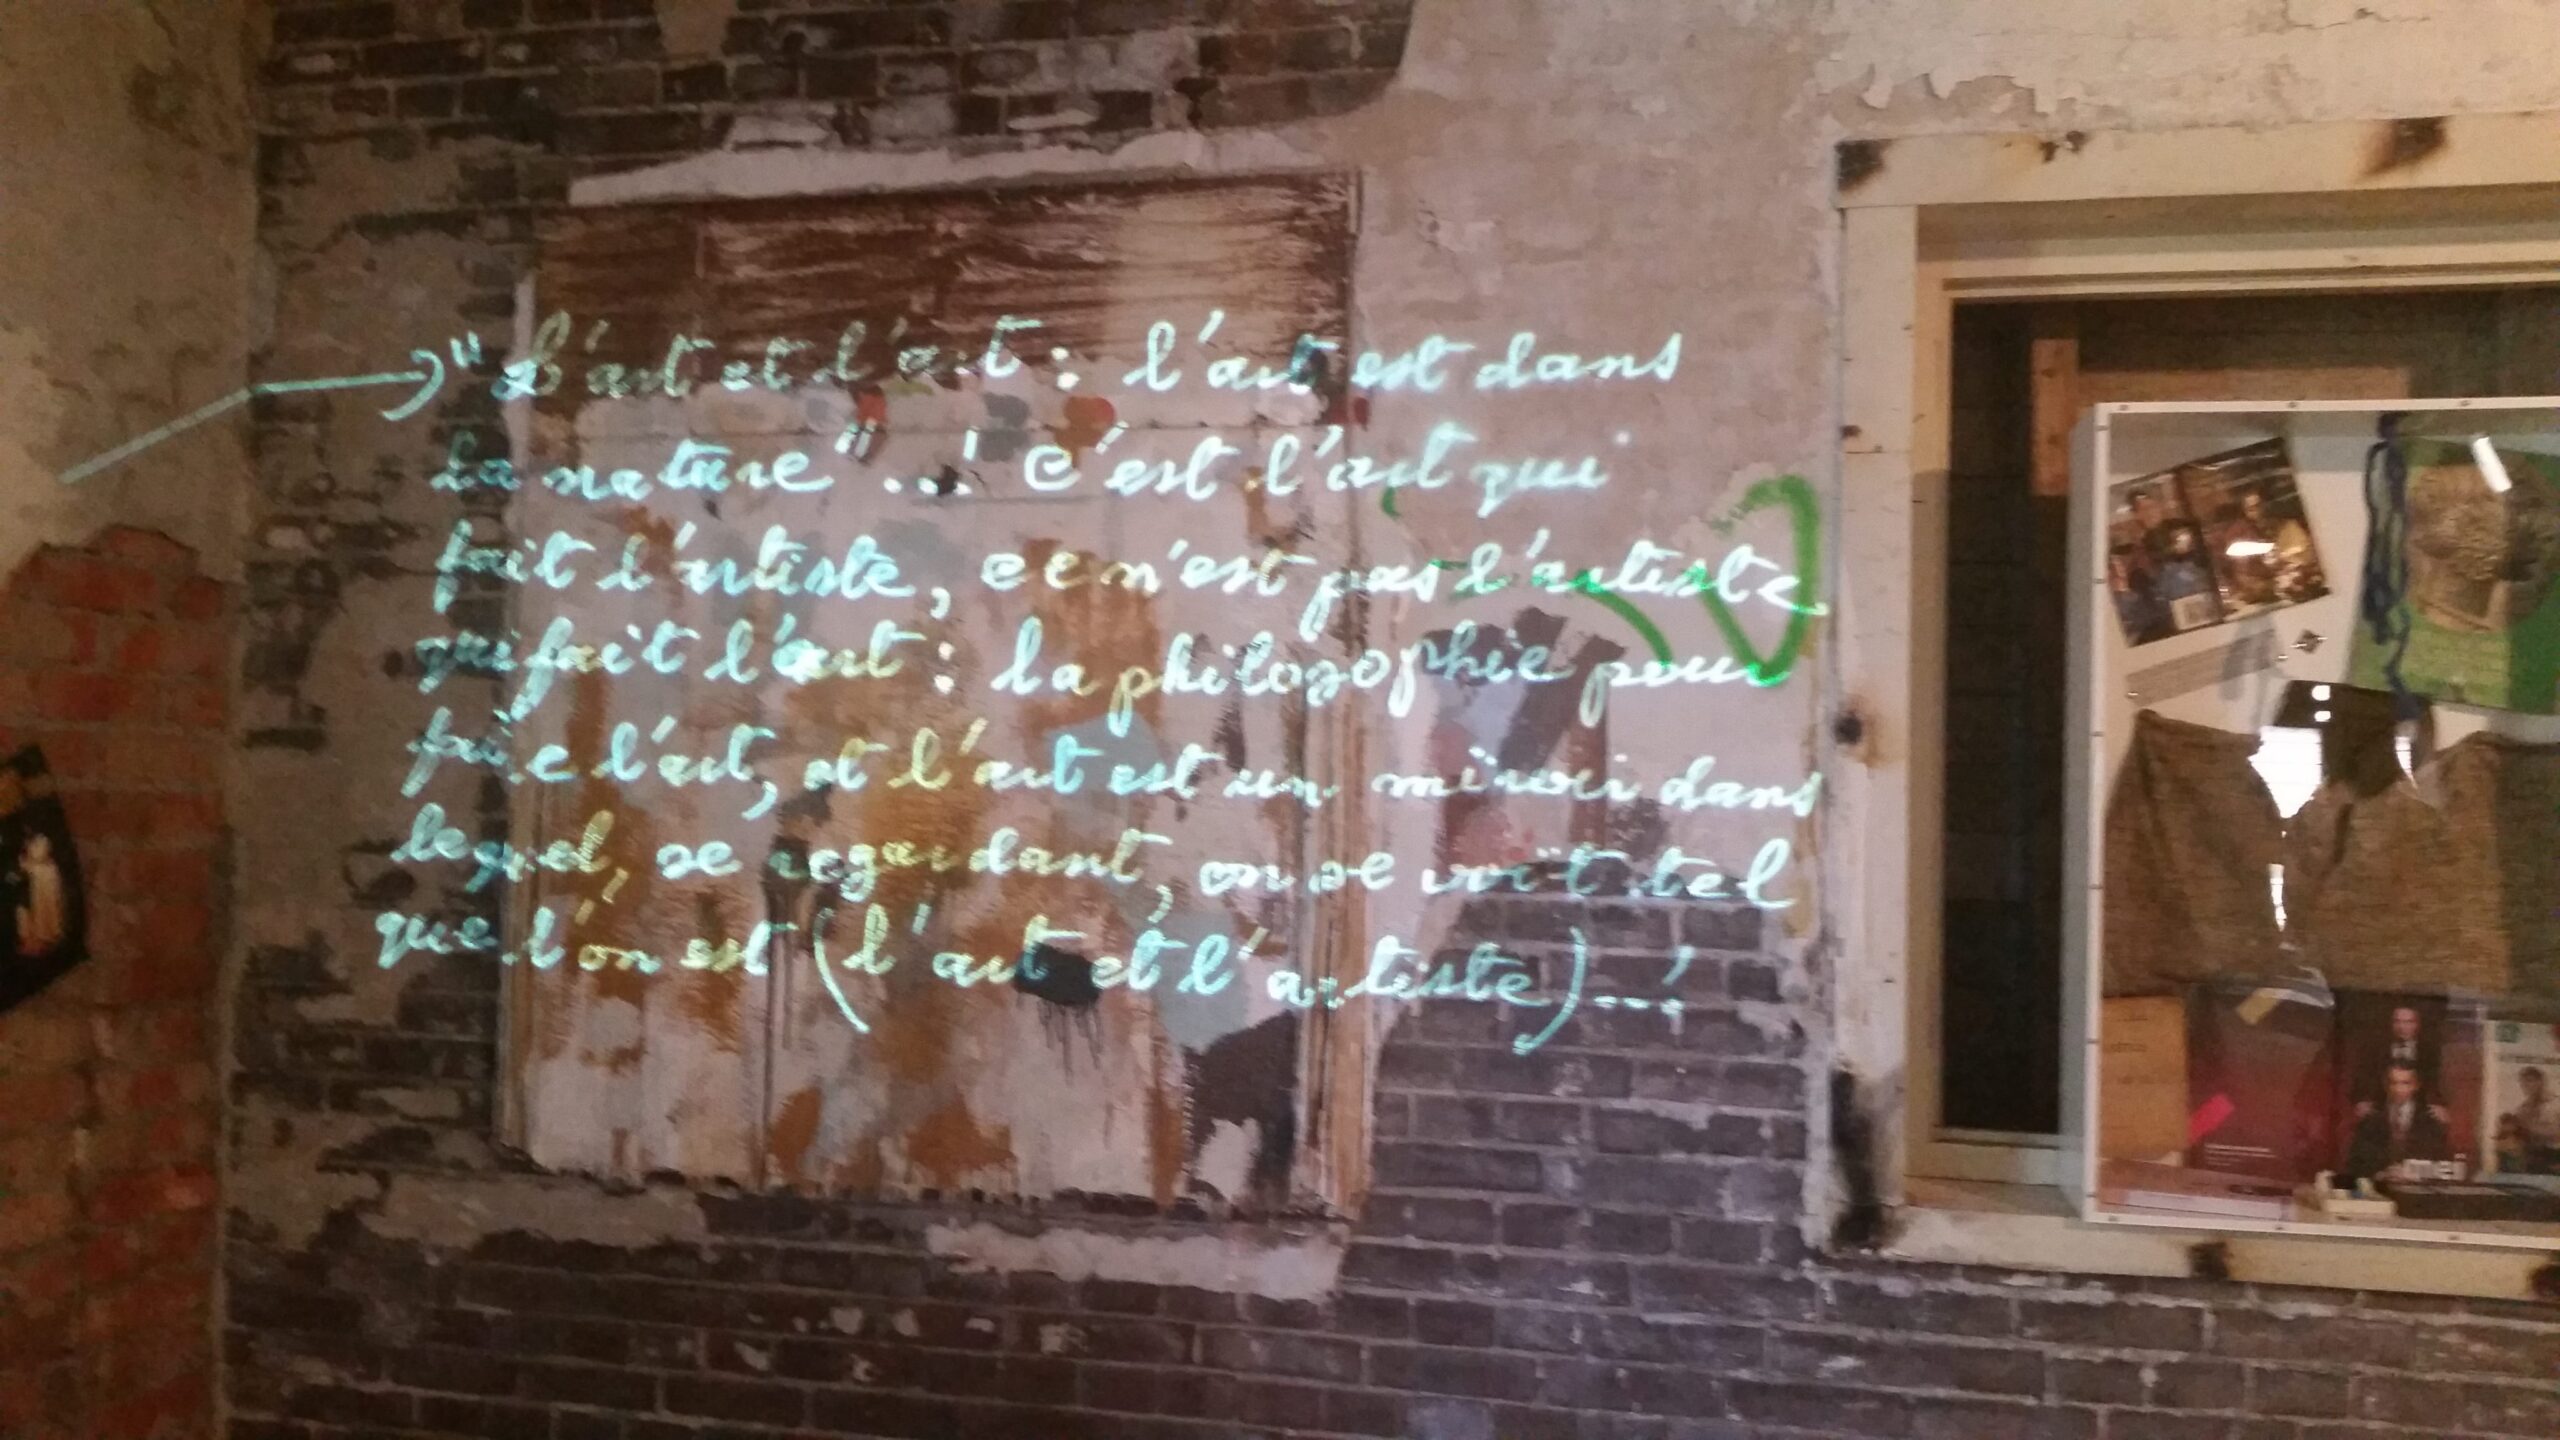 "L'art et l'art : l'art est dans
la nature"...! C'est l'art qui
fait l'artiste, ce n'est pas l'artiste
qui fait l'art : la philosophie pour
faire l'art, et l'art est un miroir dans
lequel, se regardant, on se voit tel
que l'on est (l'art et l'artiste)...!
mei